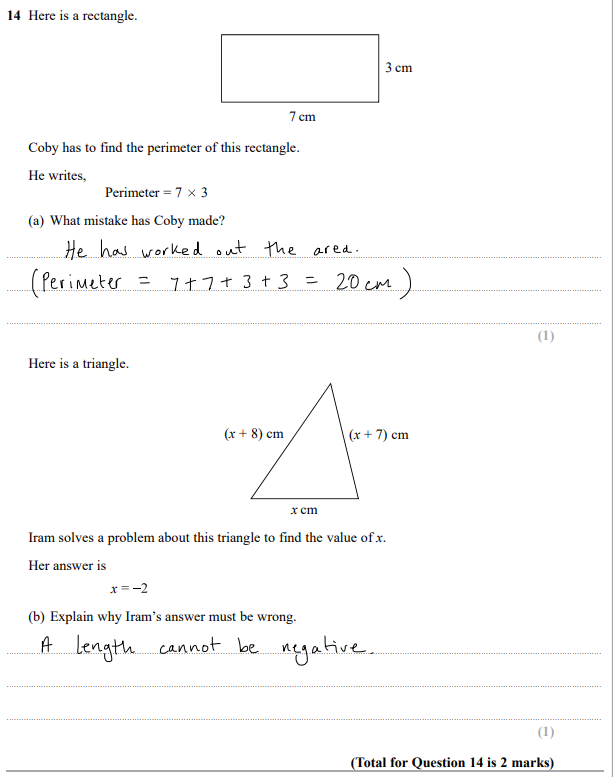 14 Here is a rectangle.
3 cm
7 cm
Coby has to find the perimeter of this rectangle.
He writes,
Perimeter = 7 × 3
(a) What mistake has Coby made?
He has worked out the area.
(Perimeter = 7 + 7 + 3 + 3 = 20 cm)
(1)
Here is a triangle.
(x + 8) cm (x + 7) cm
x cm
Iram solves a problem about this triangle to find the value of x.
Her answer is
x = −2
(b) Explain why Iram’s answer must be wrong.
A length cannot be negative.
(1)
(Total for Question 14 is 2 marks)